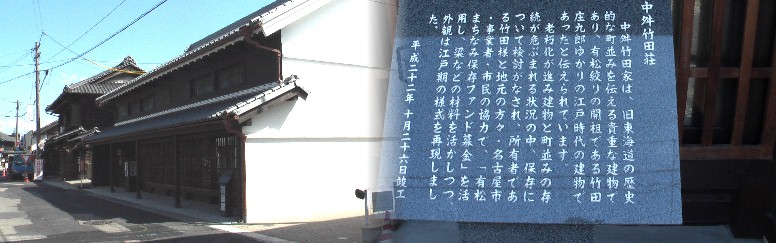 中舛竹田荘
中舛竹田家は、旧東海道の歴史
的な町並みを伝える貴重な建物で
あり、有松絞りの開祖である竹田
庄九郎ゆかりの江戸時代の建物で
あったと伝えられています。
老朽化が進み建物と町並みの存
続が危ぶまれる状況の中、保存に
ついて検討がなされ、所有者であ
る竹田様と地元の方々・名古屋市
・事業者・市民の協力で、「有松
まちなみ保存ファンド募金」を活
用し、梁などの材料を活かしつつ、
外観は江戸期の様式を再現しまし
た。
平成二十二年 十月二十六日竣工